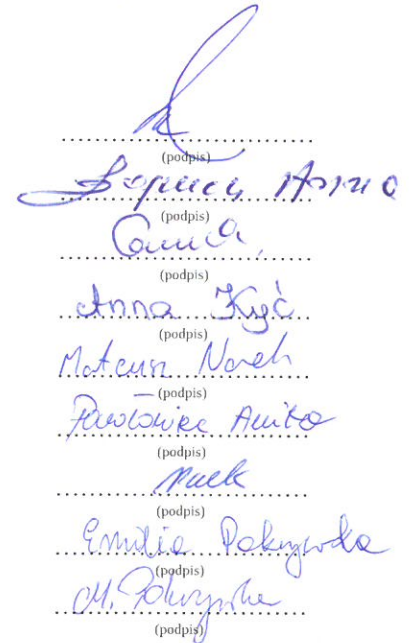 (podpis)
Anna
(podpis)
(podpis)
Anna Kyć
(podpis)
Mateusz Nowak
(podpis)
Pawłowicz Anita
(podpis)
(podpis)
Emilia Pokrywka
(podpis)
M. Pokrywka
(podpis)